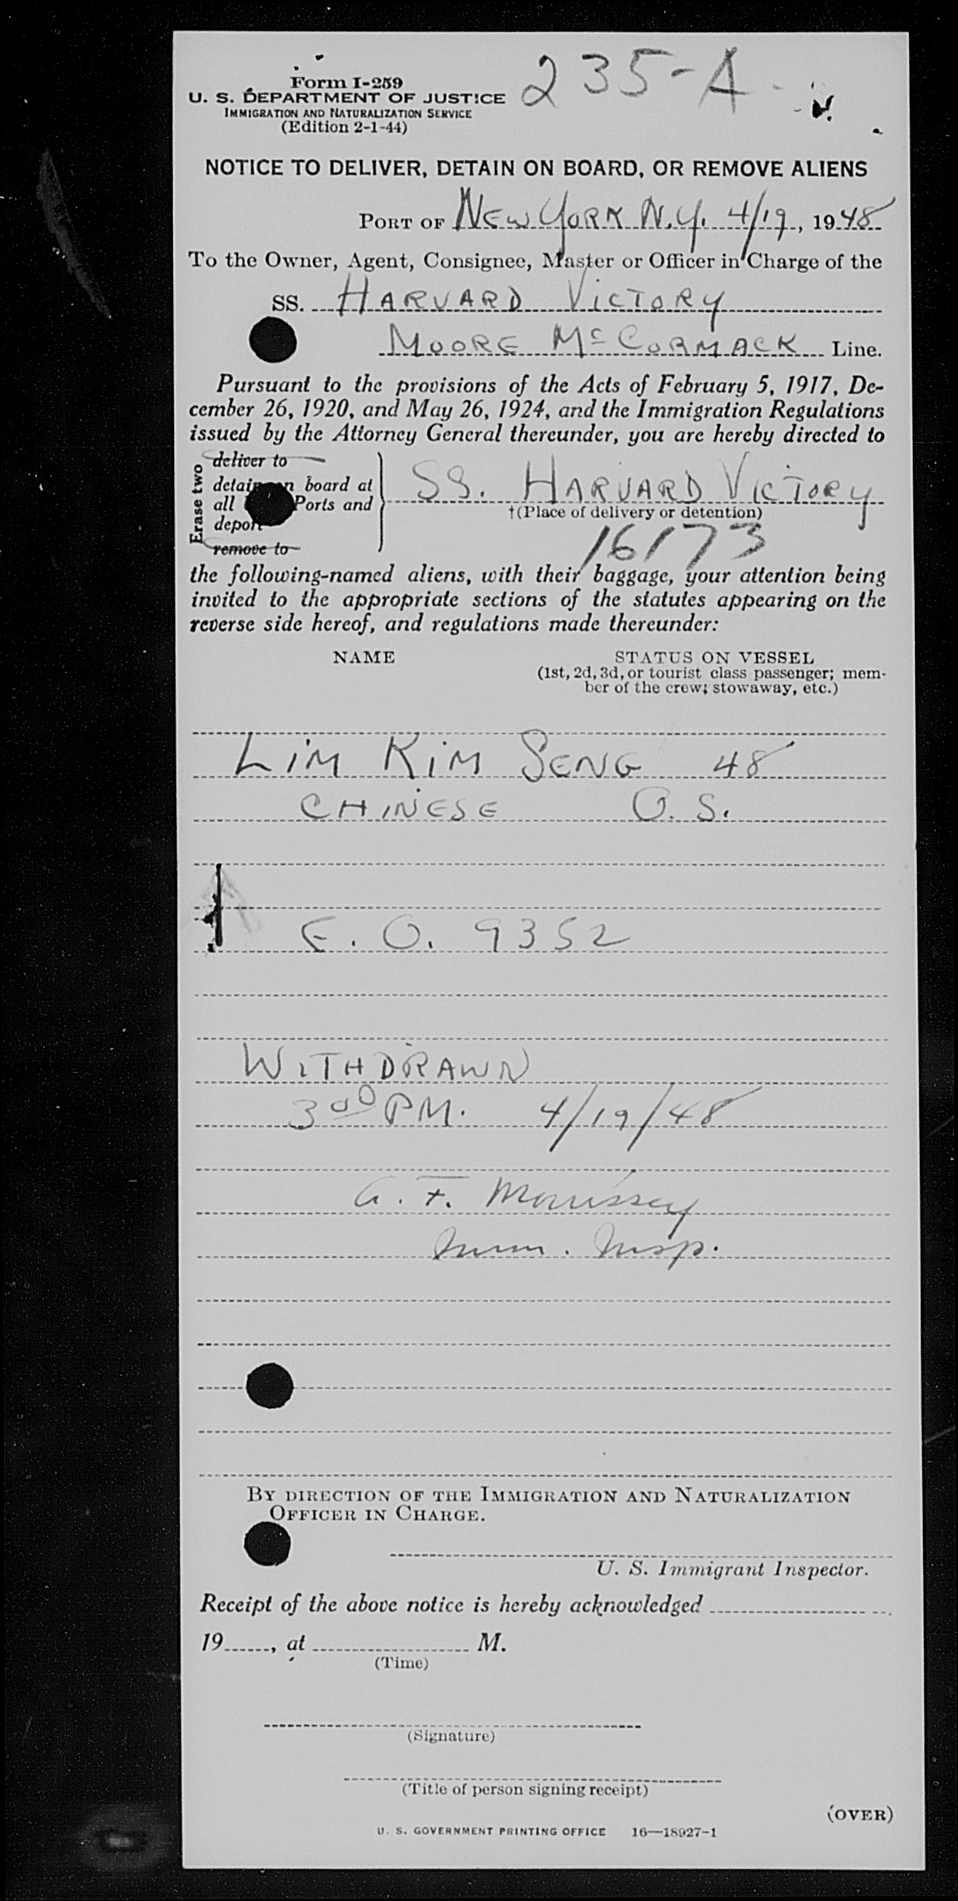 Form I-259
235-A
U. S. DEPARTMENT OF JUSTICE
IMMIGRATION AND NATURALIZATION SERVICE
(Edition 2-1-44)
NOTICE TO DELIVER, DETAIN ON BOARD, OR REMOVE ALIENS
PORT OF NEW YORK N.Y. 4/19, 1948
To the Owner, Agent, Consignee, Master or Officer in Charge of the
SS. HARVARD VICTORY
MOORE McCORMACK Line.
Pursuant to the provisions of the Acts of February 5, 1917, De-
cember 26, 1920, and May 26, 1924, and the Immigration Regulations
issued by the Attorney General thereunder, you are hereby directed to
Erase two
deliver to
detain on board at
all Ports and
deport
remove to
SS. HARVARD VICTORY
†(Place of delivery or detention)
16173
the following-named aliens, with their baggage, your attention being
invited to the appropriate sections of the statutes appearing on the
reverse side hereof, and regulations made thereunder:
NAME STATUS ON VESSEL
(1st, 2d, 3d, or tourist class passenger; mem-
ber of the crew; stowaway, etc.)
LIM KIM SENG 48
CHINESE O. S.
E. O. 9352
WITHDRAWN
3 00 PM. 4/19/48
A. F. Morrissey
Imm. Insp.
BY DIRECTION OF THE IMMIGRATION AND NATURALIZATION
OFFICER IN CHARGE.
U. S. Immigrant Inspector.
Receipt of the above notice is hereby acknowledged
19, at M.
(Time)
(Signature)
(Title of person signing receipt)
(OVER)
U. S. GOVERNMENT PRINTING OFFICE 16—18927-1